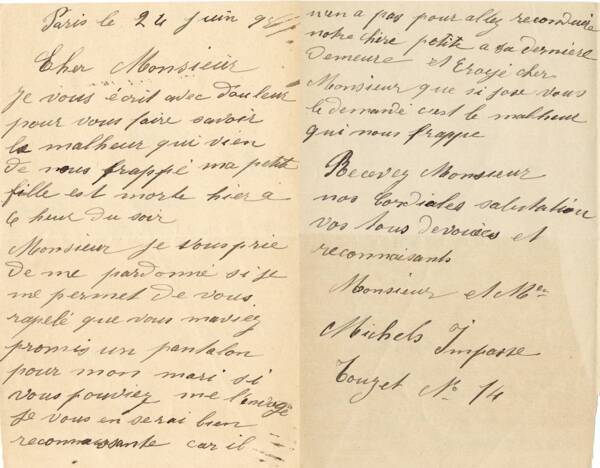 Paris le 24 juin
Cher Monsieur
je vous écrit avec douleur
pour vous faire savoir
le malheur qui vien
de nous frappé ma petit
fille est morte hier à
6 heur du soir
Monsieur je vous prie
de me pardonné si je
me permet de vous
rapelé que vous maviez
promis un pantalon
pour mon mari si
vous pouviez me l'envoyé
je vous en serai bien
reconnaissante car il
n'en a pas pour allez reconduire
notre chère petit a sa dernière
demeure et Croyé cher
Monsieur que si jose vous
le demandé c'est le malheur
qui nous frappe
Recevez Monsieur
nos Cordiales salutation
vos tous devoués et
reconnaisants
Monsieur et Mme
Michels Impasse
Touzet No 14